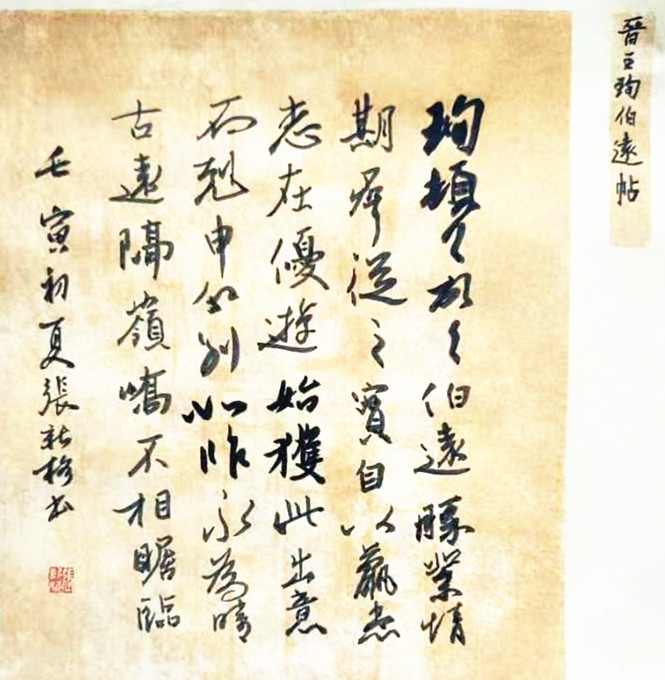 晉王珣伯遠帖
珣頓首頓首伯遠勝業情
期群從之寶自以羸患
志在優遊始獲此出意
不剋申分別如昨永為疇
古遠隔嶺嶠不相瞻臨
壬寅初夏張书